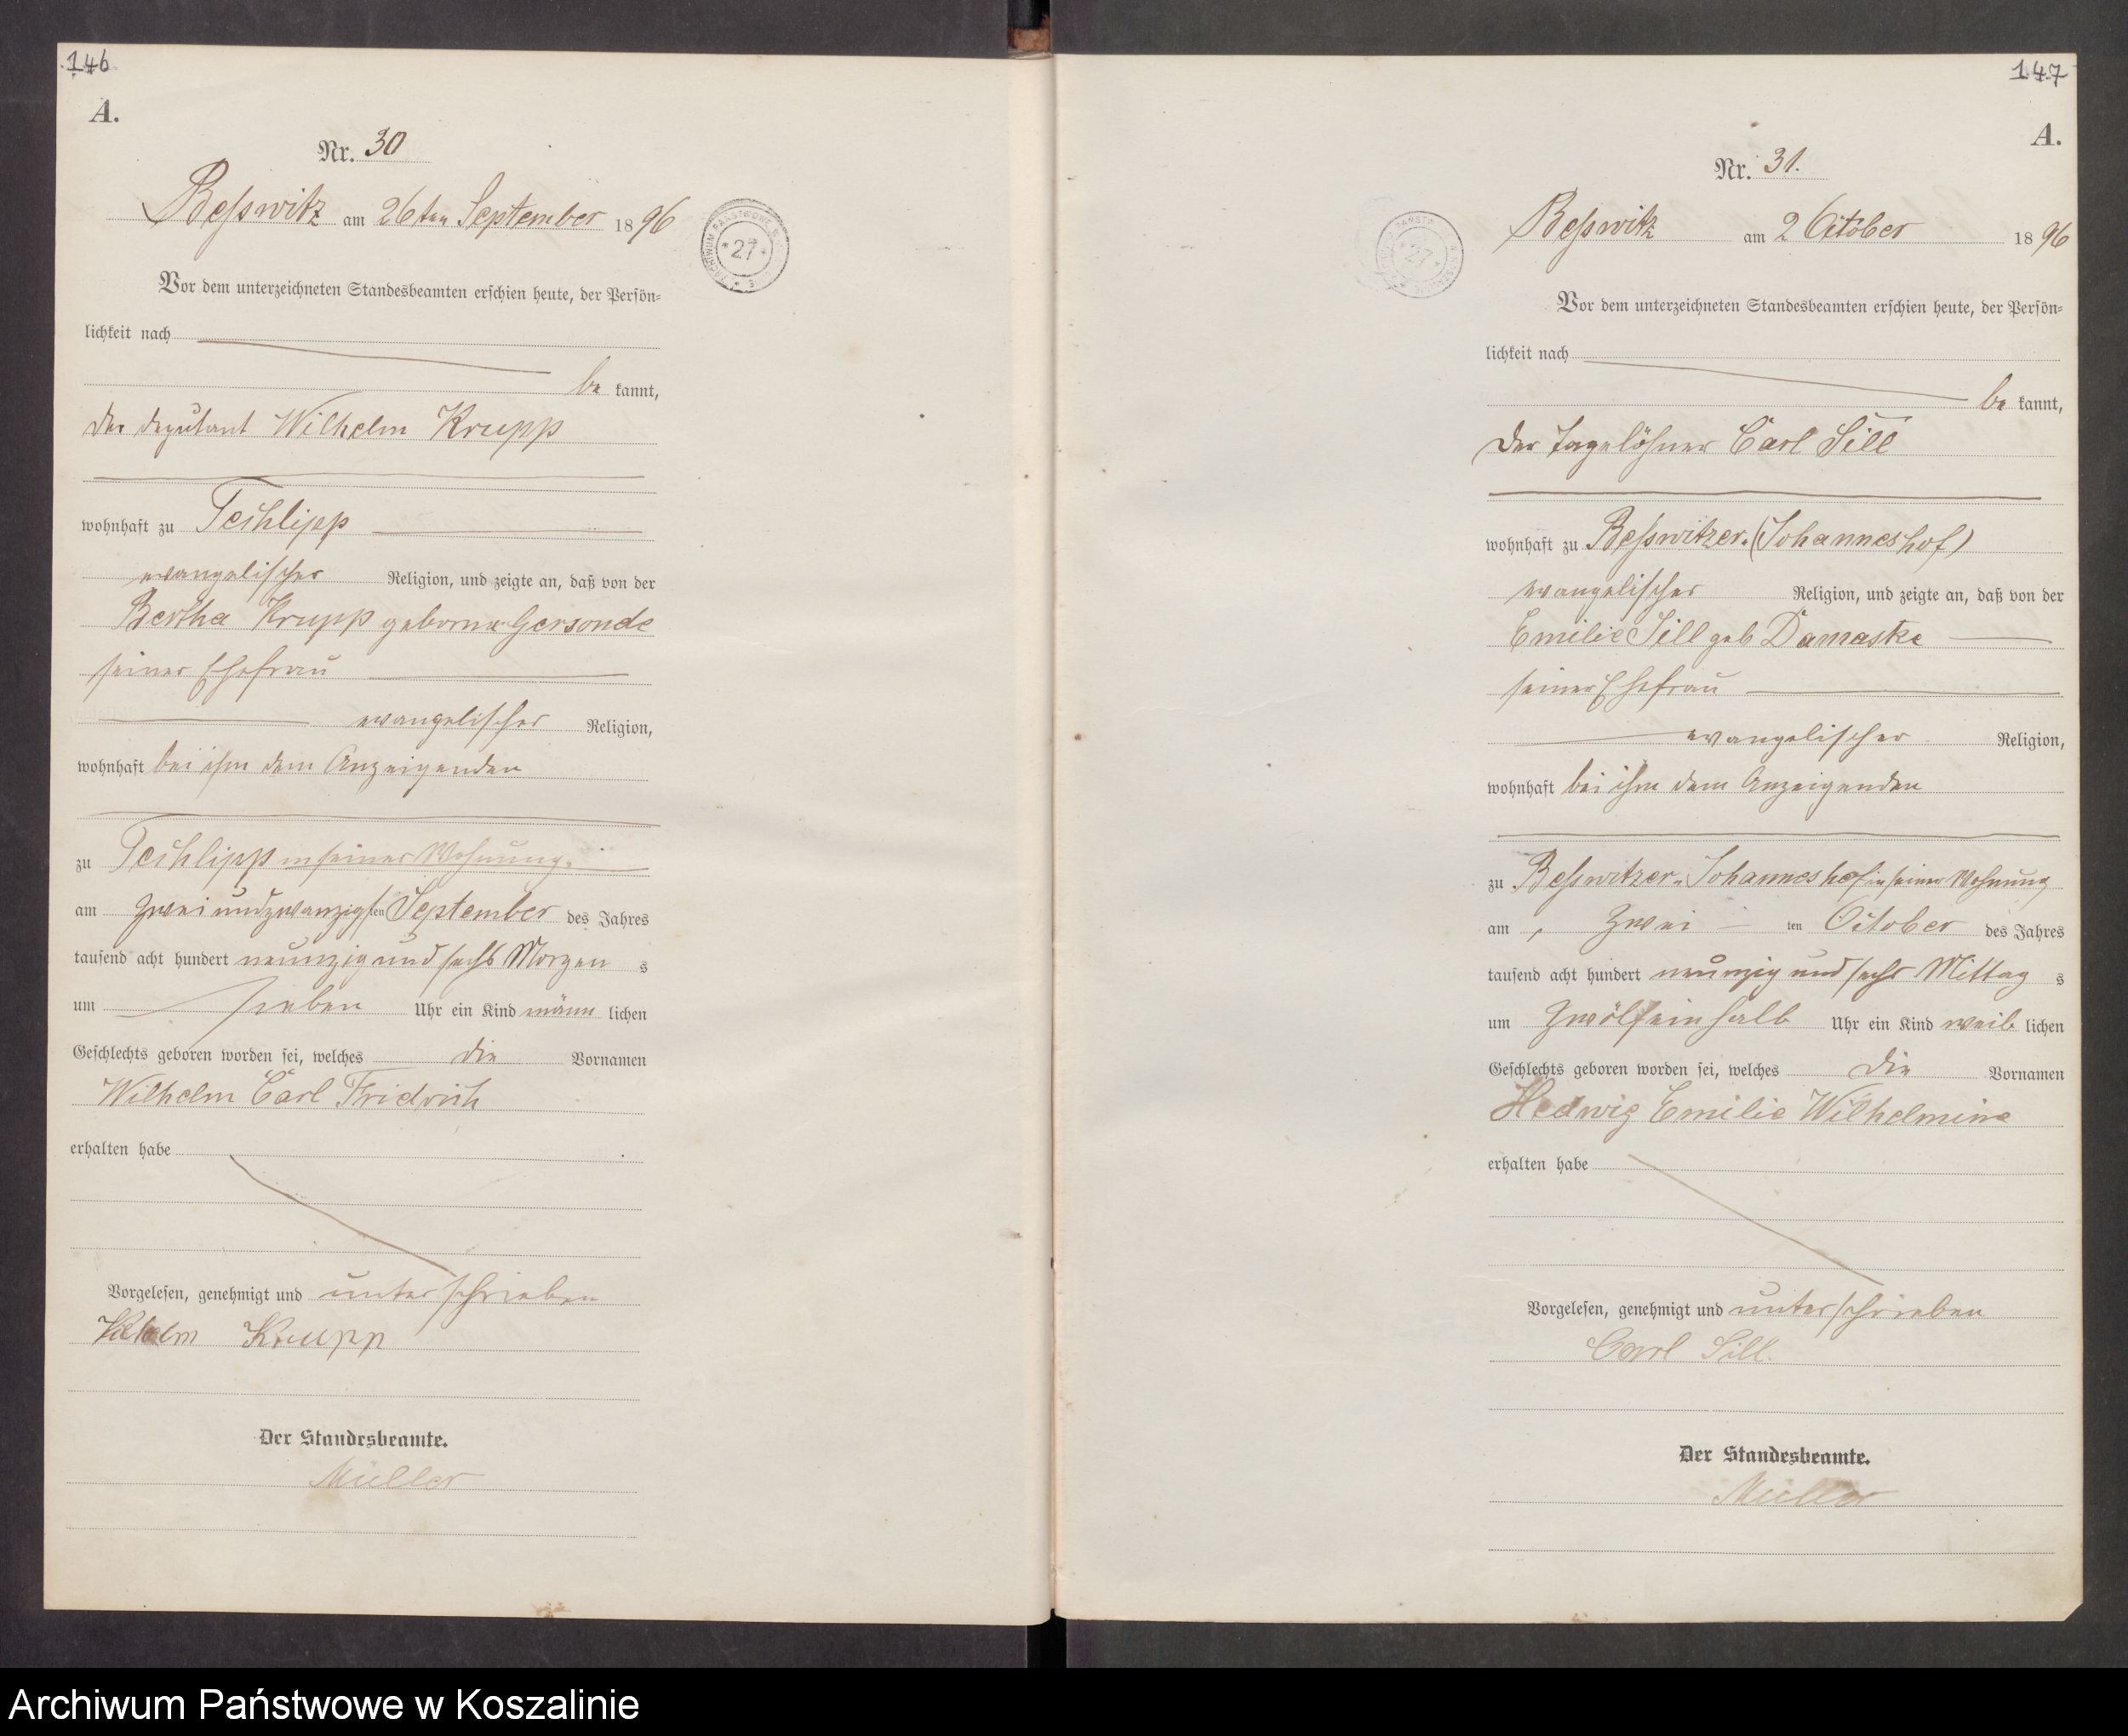 146
A.
Nr. 30
Beßwitz am 26ten September 1896
Vor dem unterzeichneten Standesbeamten erschien heute, der Persön-
lichkeit nach
be kannt,
der Deputant Wilhelm Krupp
wohnhaft zu Techlipp
evangelischer Religion, und zeigte an, daß von der
Bertha Krupp geborne Gersonde
seiner Ehefrau
evangelischer Religion,
wohnhaft bei ihm dem Anzeigenden
zu Techlipp in seiner Wohnung.
am zwei und zwanzigsten September des Jahres
tausend acht hundert neunzig und sechs Morgens
um sieben Uhr ein Kind männlichen
Geschlechts geboren worden sei, welches die Vornamen
Wilhelm Carl Fridrich
erhalten habe
Vorgelesen, genehmigt und unterschrieben
Wilhelm Krupp
Der Standesbeamte.
Müller
27
147
A.
Nr. 31.
Beßwitz am 2 October 1896
Vor dem unterzeichneten Standesbeamten erschien heute, der Persön-
lichkeit nach
be kannt,
der Tagelöhner Carl Sill
wohnhaft zu Beßwitzer-(Johanneshof)
evangelischer Religion, und zeigte an, daß von der
Emilie Sill geb Damaske
seiner Ehefrau
evangelischer Religion,
wohnhaft bei ihm dem Anzeigenden
zu Beßwitzer-Johanneshof in seiner Wohnung
am zwei ten October des Jahres
tausend acht hundert neunzig und sechs Mittags
um zwölfeinhalb Uhr ein Kind weiblichen
Geschlechts geboren worden sei, welches die Vornamen
Hedwig Emilie Wilhelmine
erhalten habe
Vorgelesen, genehmigt und unterschrieben
Carl Sill.
Der Standesbeamte.
Müller
27
Archiwum Państwowe w Koszalinie